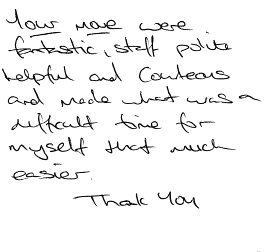 Your move were
fantastic, staff polite
helpful and Couteous
and made what was a
difficult time for
myself that much
easier.
Thank You